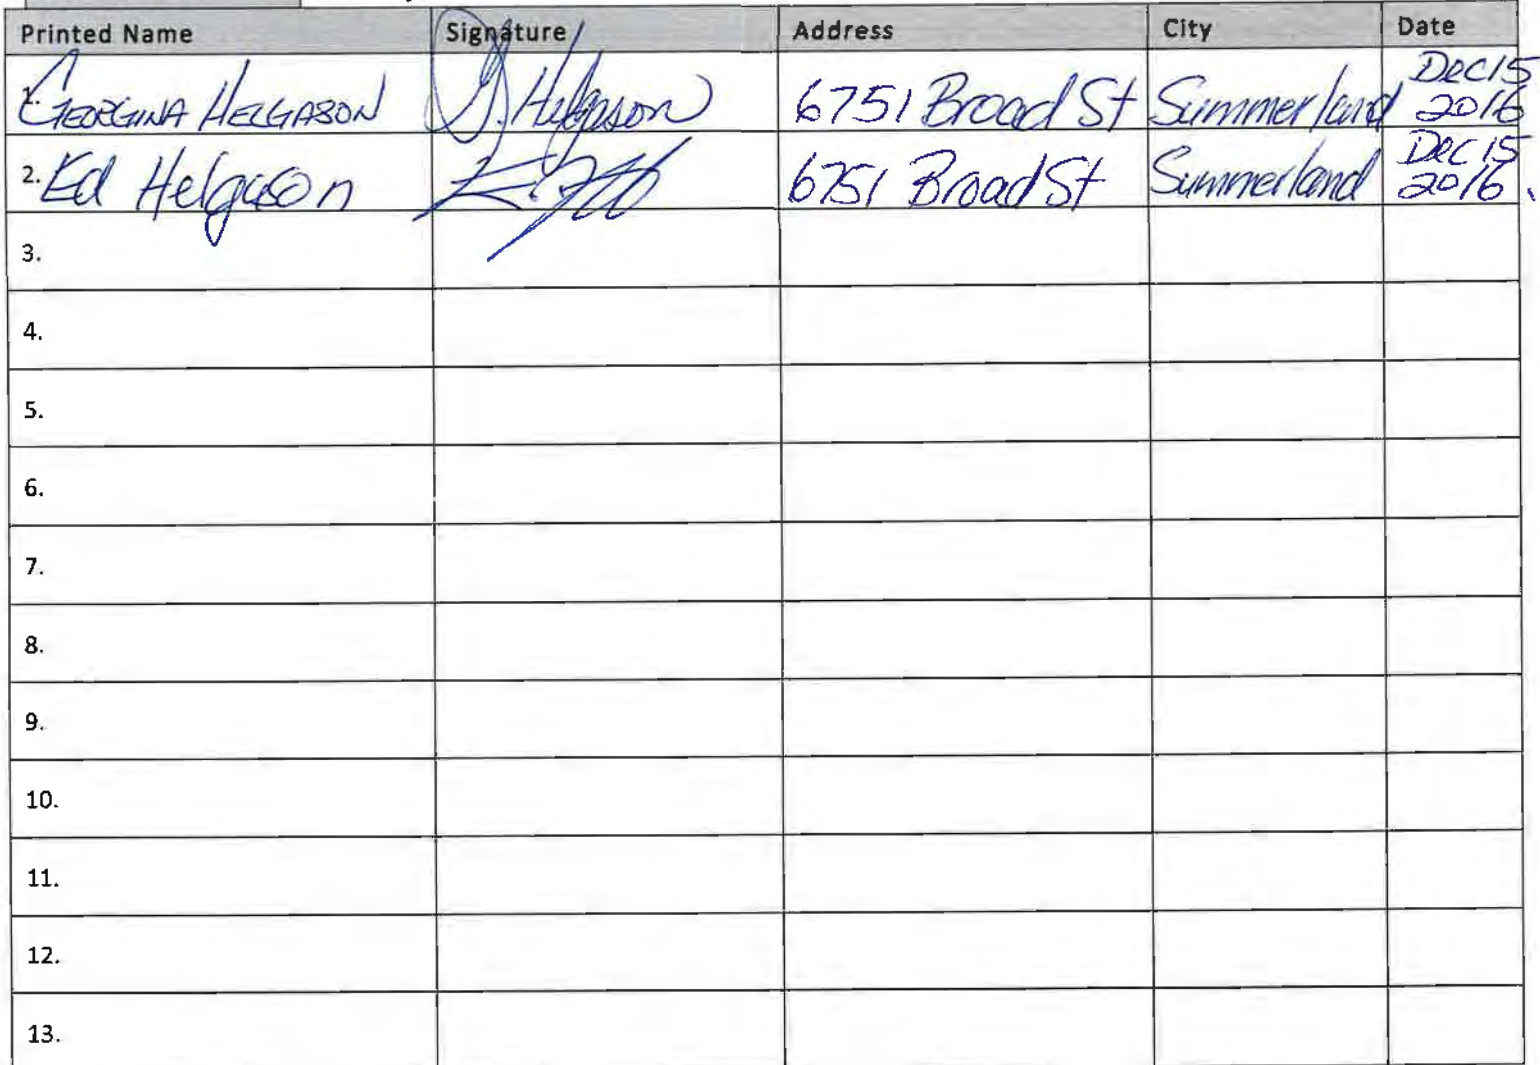 Printed Name Signature Address City Date
1. GEORGINA HELGASON G. Helgason 6751 Broad St Summerland Dec 15 2016
2. Ed Helgason 6751 Broad St Summerland Dec 15 2016.
3.
4.
5.
6.
7.
8.
9.
10.
11.
12.
13.